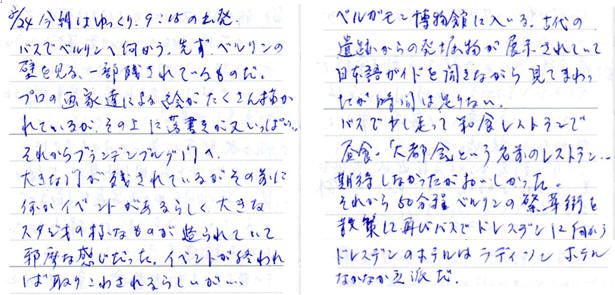 5/24 今朝はゆっくり、9:15の出発。
バスでベルリンへ向かう。先ず、ベルリンの
壁を見る、一部残されているものだ。
プロの画家達による絵がたくさん描か
れているが、その上に落書きが又いっぱい。
それからブランデンブルグ門へ。
大きな門が残されているがその前に
何かイベントがあるらしく大きな
スタジオの様なものが造られていて
邪魔な感じだった。イベントが終われ
ば取りこわされるらしいが…
ベルガモン博物館に入いる。古代の
遺跡からの発掘物が展示されていて
日本語ガイドを聞きながら見てまわっ
たが時間は足りない。
バスで少し走って和食レストランで
昼食。「大都会」という名前のレストラン…
期待しなかったがおいしかった。
それから50分程ベルリンの繁華街を
散策して再びバスでドレスデンに向かう
ドレスデンのホテルはラディソン ホテル
なかなか立派だ。